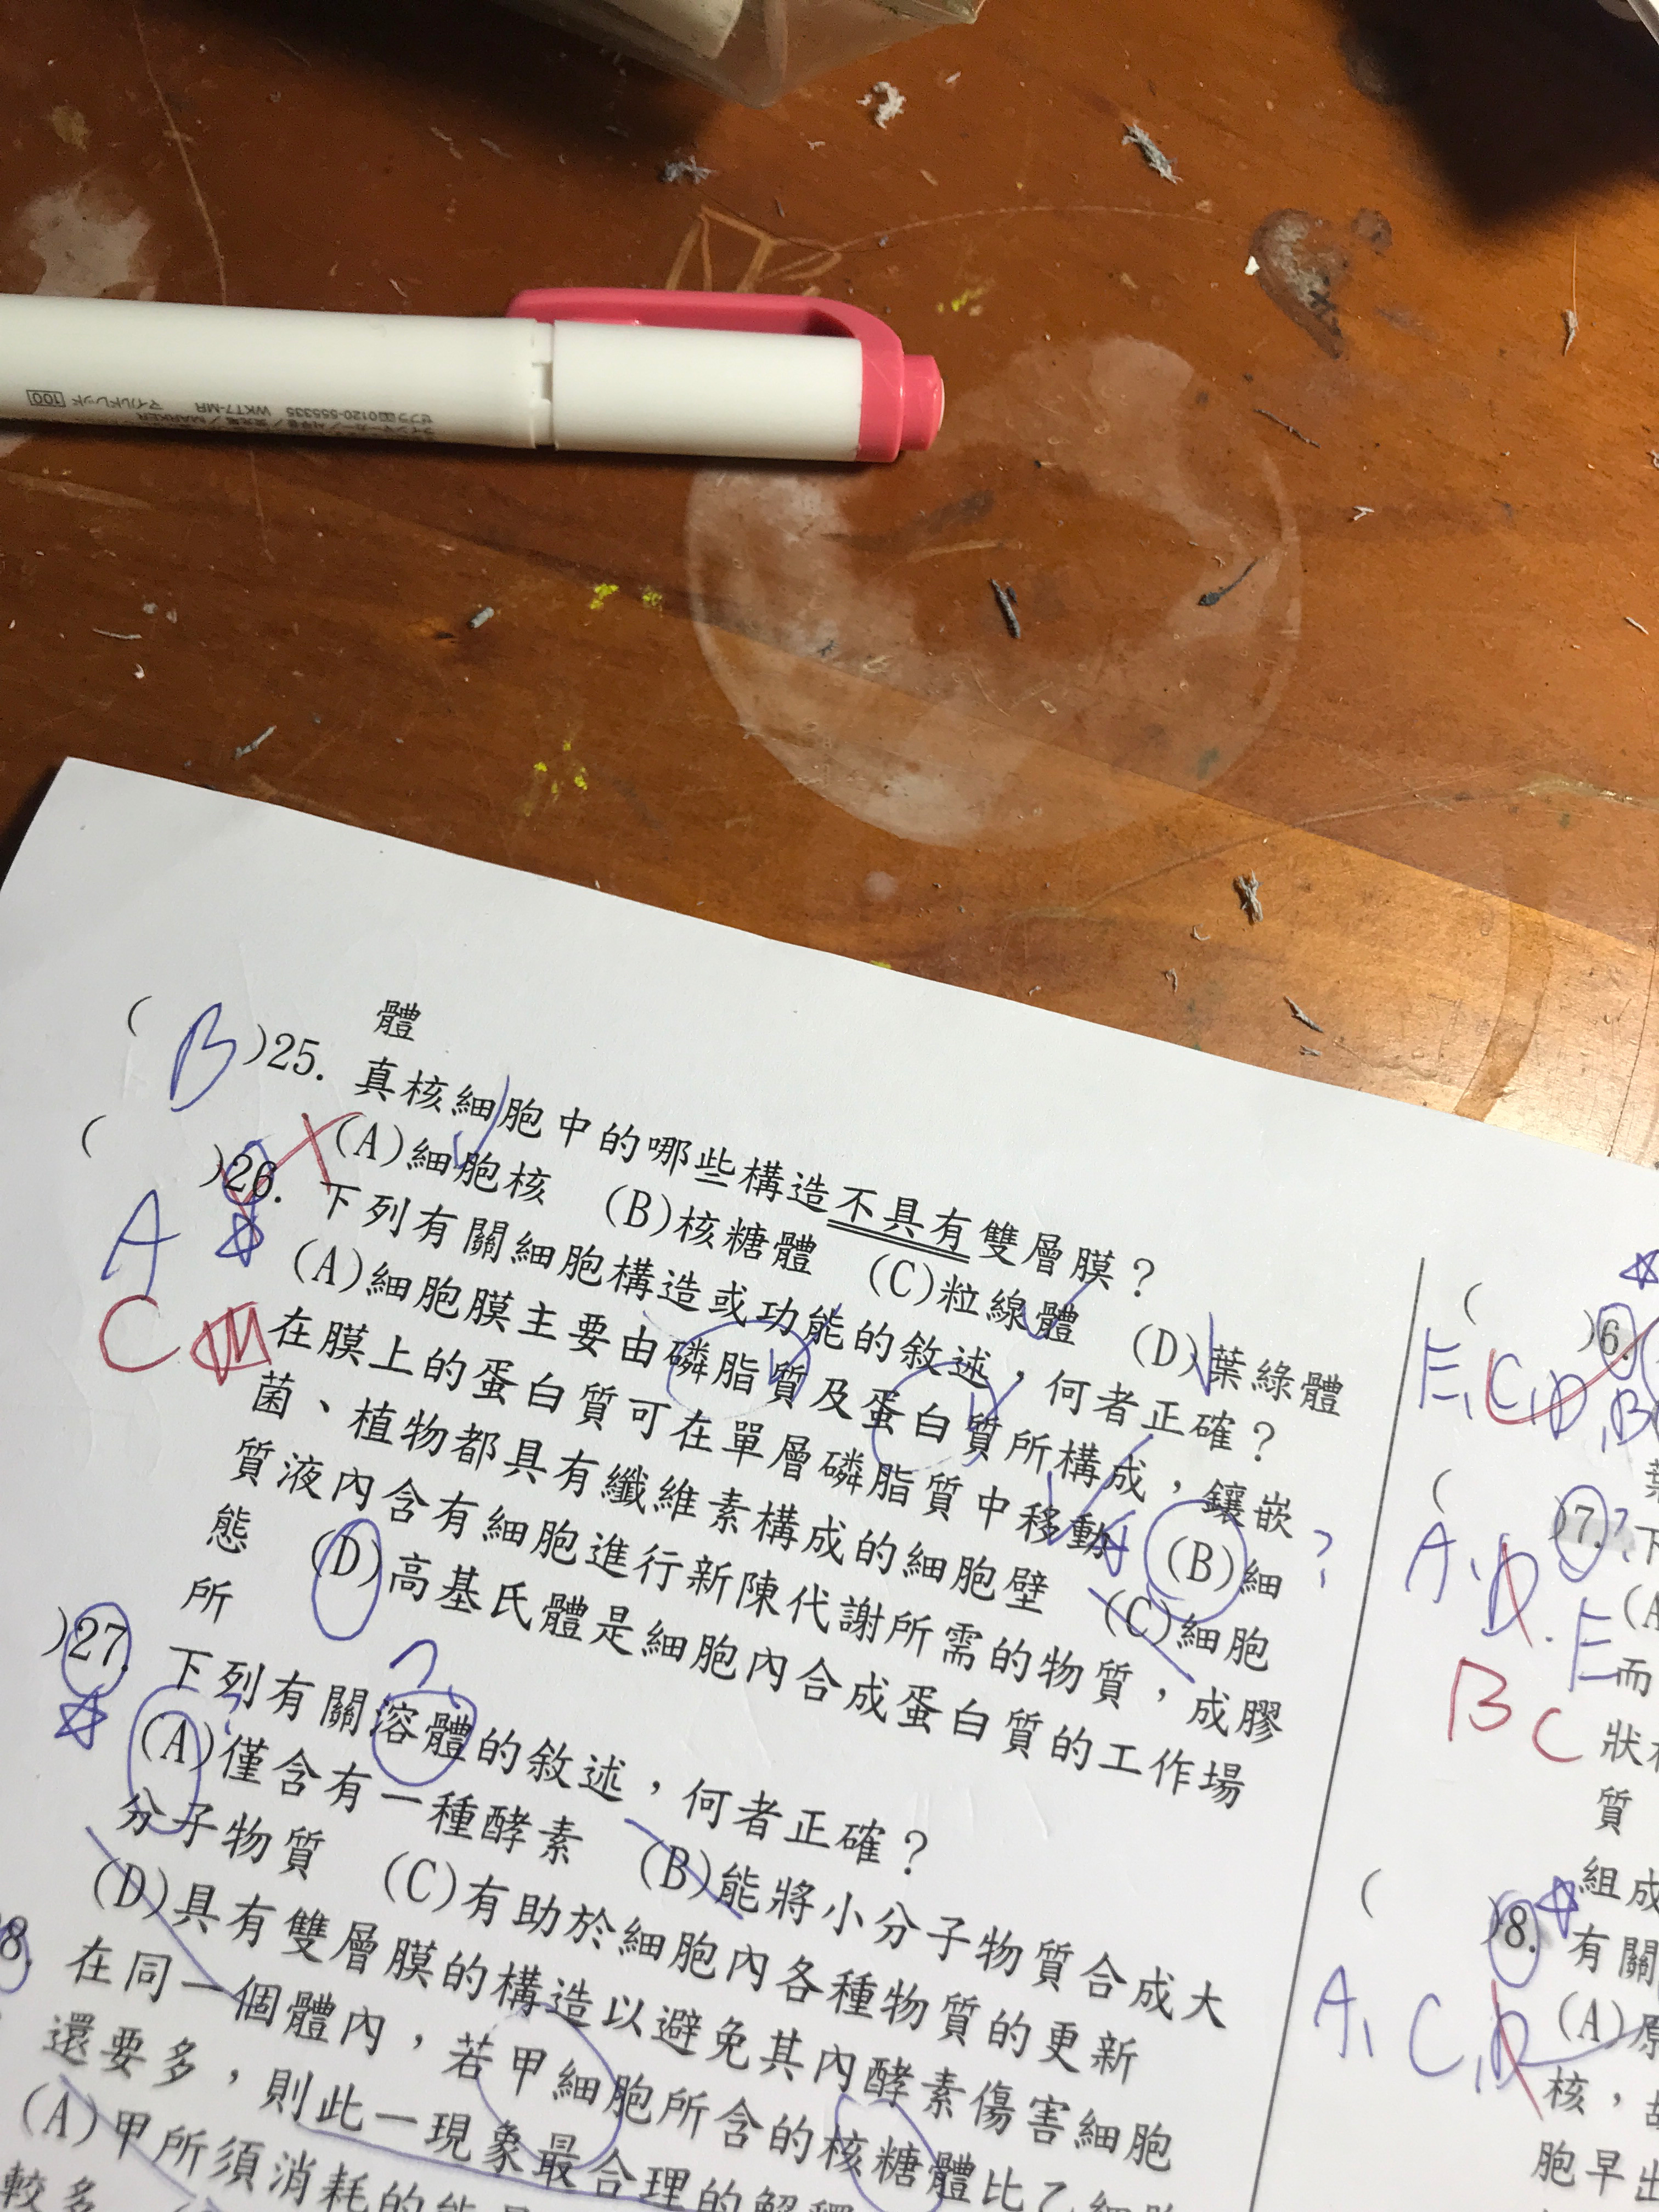 マイルドレッド 100
WKT7-MR
ゼブラ(株)0120-555335
體
( B )25. 真核細胞中的哪些構造不具有雙層膜?
(A)細胞核 (B)核糖體 (C)粒線體 (D)葉綠體
( A )26. 下列有關細胞構造或功能的敘述,何者正確?
C
(A)細胞膜主要由磷脂質及蛋白質所構成,鑲嵌
在膜上的蛋白質可在單層磷脂質中移動 (B)細
?
菌、植物都具有纖維素構成的細胞壁 (C)細胞
質液內含有細胞進行新陳代謝所需的物質,成膠
態 (D)高基氏體是細胞內合成蛋白質的工作場
所
)27. 下列有關溶體的敘述,何者正確?
?
(A)僅含有一種酵素 (B)能將小分子物質合成大
分子物質 (C)有助於細胞內各種物質的更新
(D)具有雙層膜的構造以避免其內酵素傷害細胞
8. 在同一個體內,若甲細胞所含的核糖體比乙細胞
還要多,則此一現象最合理的解釋
(A)甲所須消耗的能
較多
( )6.
E,C,D,B
葉
( )7. ? 下
A,D,E
(A
B C
而
狀
質
組成
( )8. 有關
A, C, D
(A)原
核,故
胞早出